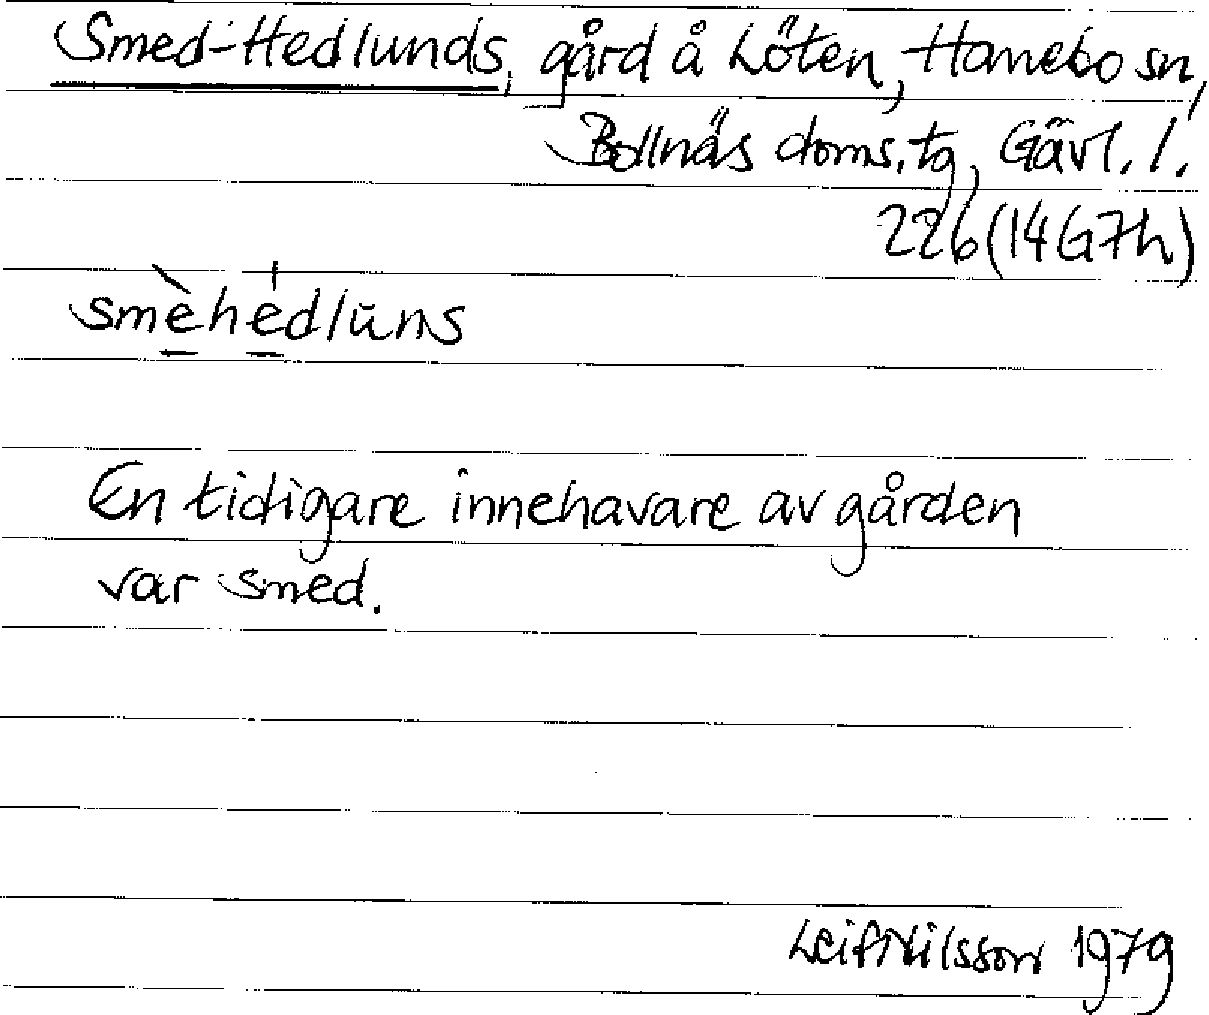 Smed-Hedlunds, gård å Löten, Hanebo sn,
Bollnäs doms. tg, Gävl. l.
226 (14G7h)
smèhédlŭns
En tidigare innehavare av gården
var smed.
Leif Nilsson 1979